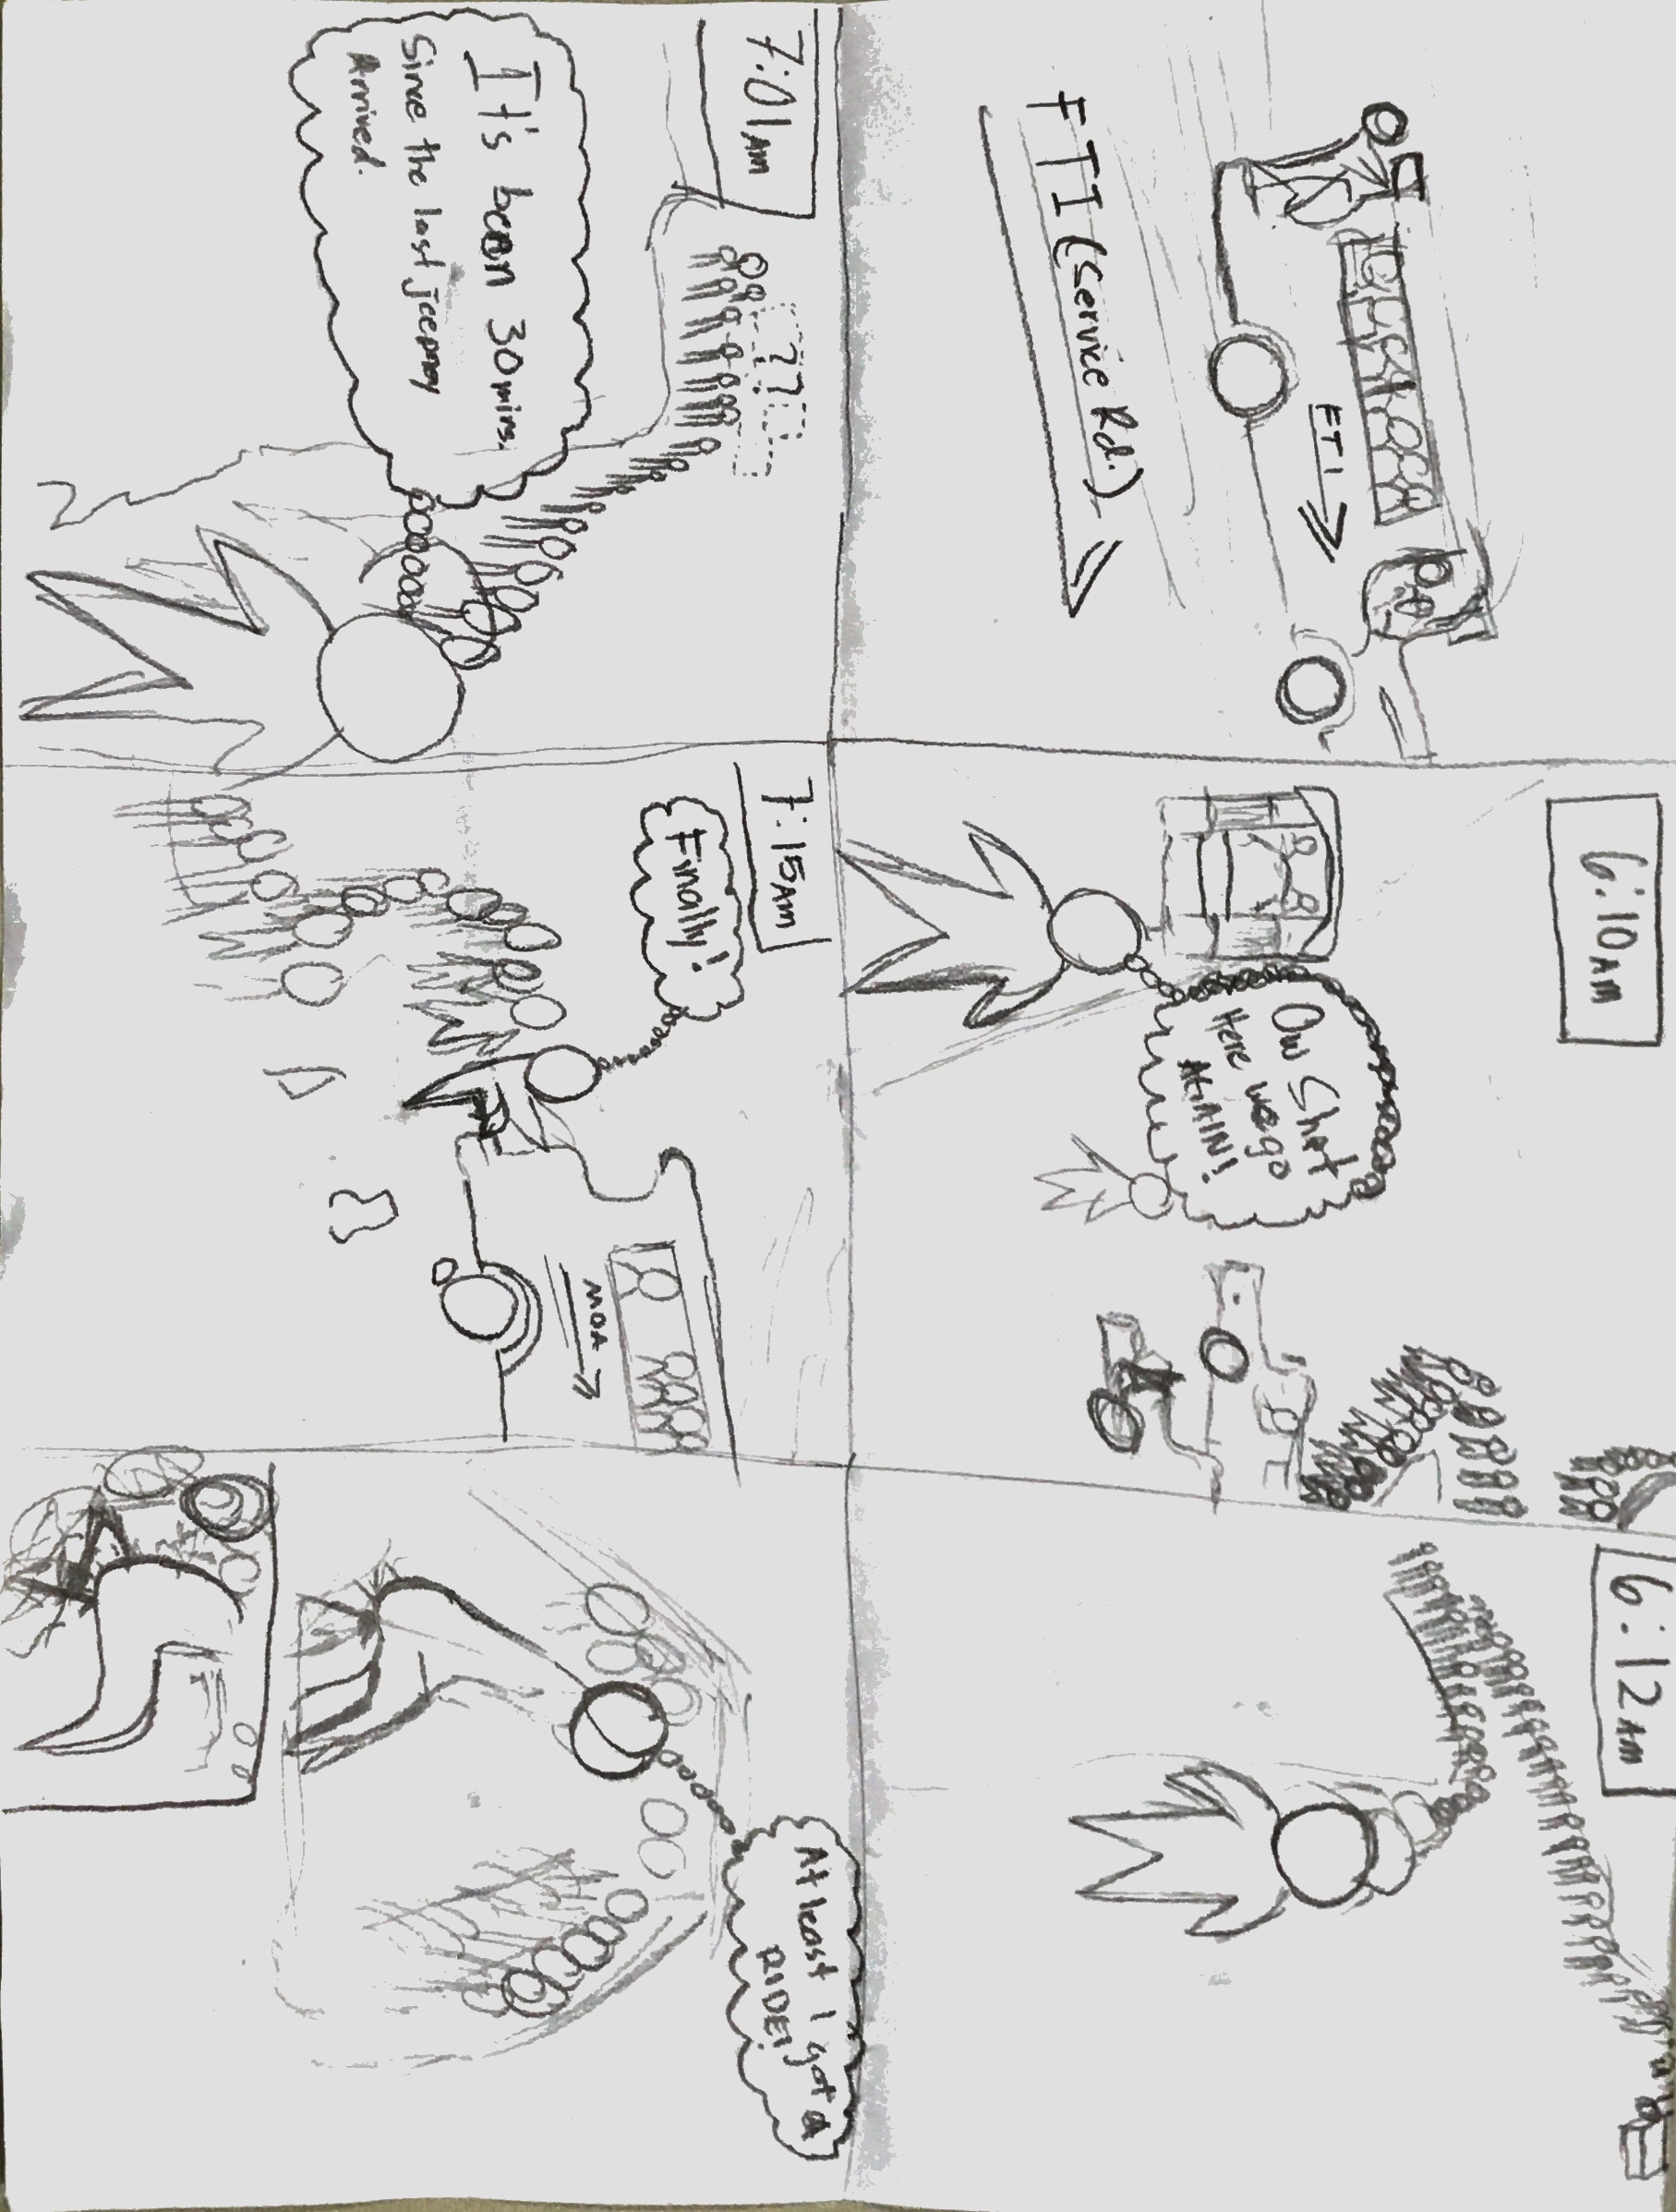 FTI →
FTI (Service Rd.)
6:10AM
Aw Shat
Here we go
AGAIN!
6:12AM
7:01AM
It's been 30mins.
Since the last jeepney
Arrived.
7:15AM
Finally!
MOA →
At least I got a
RIDE!